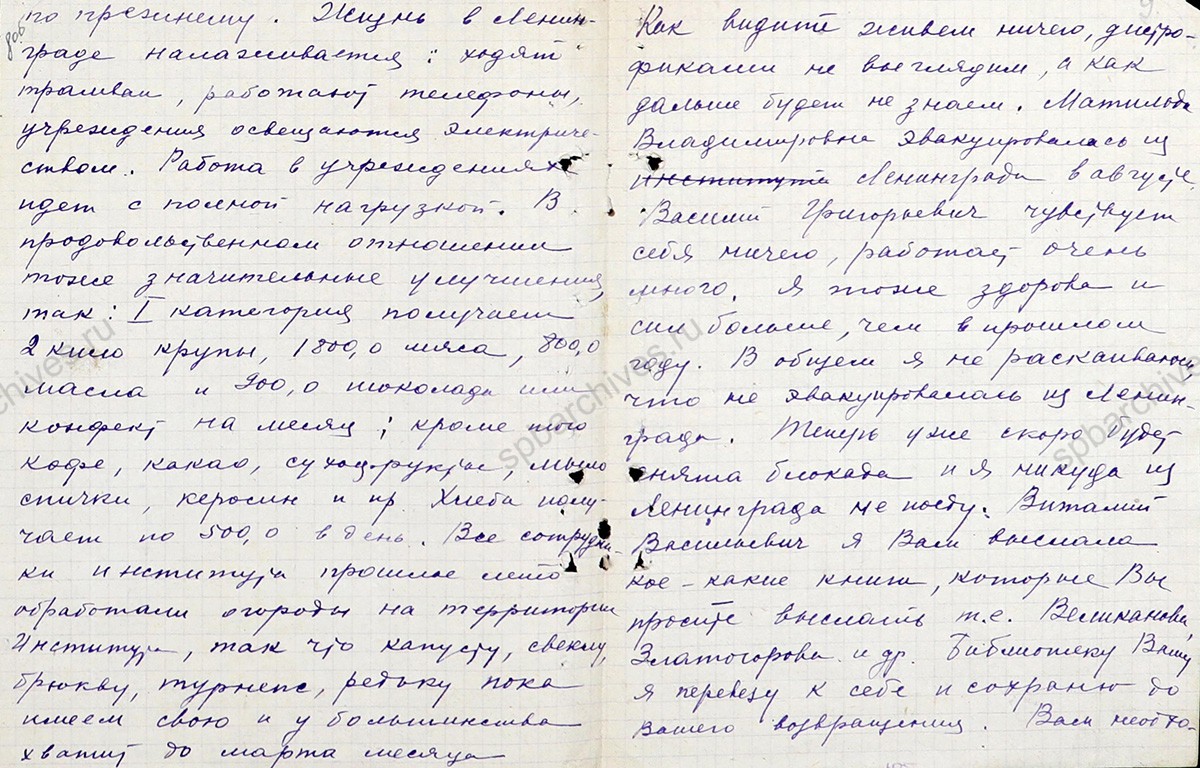 по прежнему. Жизнь в Ленин-
граде налаживается: ходят
трамваи, работают телефоны,
учреждения освещаются электриче-
ством. Работа в учреждениях
идет с полной нагрузкой. В
продовольственном отношении
тоже значительные улучшения,
так: I категория получает
2 кило крупы, 1800,0 мяса, 800,0
масла и 900,0 шоколада или
конфект на месяц; кроме того
кофе, какао, сухофрукты, мыло
спички, керосин и пр. Хлеба полу-
чает по 500,0 в день. Все сотрудни-
ки института прошлое лето
обработали огороды на территории
Института, так что капусту, свеклу,
брюкву, турнепс, редьку пока
имеем свою и у большинства
хватит до марта месяца
Как видите живем ничего, дистро-
фиками не выглядим, а как
дальше будет не знаем. Матильда
Владимировна эвакуировалась из
института Ленинграда в августе
Василий Григорьевич чувствует
себя ничего, работает очень
много. Я тоже здорова и
сил больше, чем в прошлом
году. В общем я не раскаиваюсь
что не эвакуировалась из Ленин-
града. Теперь уже скоро будет
снята блокада и я никуда из
Ленинграда не поеду. Виталий
Васильевич я Вам выслала
кое-какие книги, которые Вы
просите выслать т.е. Великанова,
Златогорова и др. Библиотеку Вашу
я перевезу к себе и сохраню до
Вашего возвращения. Вам необхо-
spbarchives.ru
spbarchives.ru